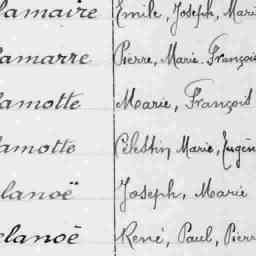 lamaire Émile, Joseph, Mari
lamarre Pierre, Marie. François
lamotte Marie, François
lamotte Célestin, Marie, Eugèn
lanoë Joseph, Marie
elanoë René, Paul, Pierr